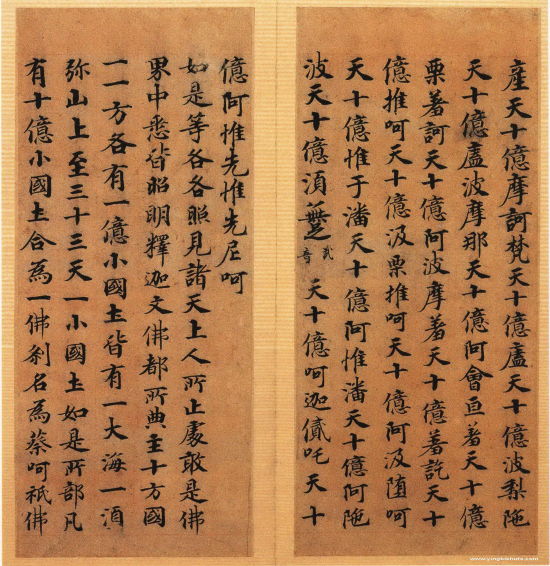 產天十億摩訶梵天十億盧天十億波梨陁
天十億盧波摩那天十億阿會亘著天十億
栗著訶天十億阿波摩著天十億著訖天十
億推呵天十億汲栗推呵天十億阿汲堕呵
天十億惟于潘天十億阿惟潘天十億阿陁
波天十億湏 天十億呵迦貳吒天十
億阿惟先惟先尼呵
如是等各各照見諸天上人所止處敢是佛
界中悉皆昭明釋迦文佛都所典主十方國
一一方各有一億小國土皆有一大海一湏
弥山上至三十三天一小國土如是所部凡
有十億小國土合為一佛剎名為蔡呵祇佛
www.yingbishufa.com